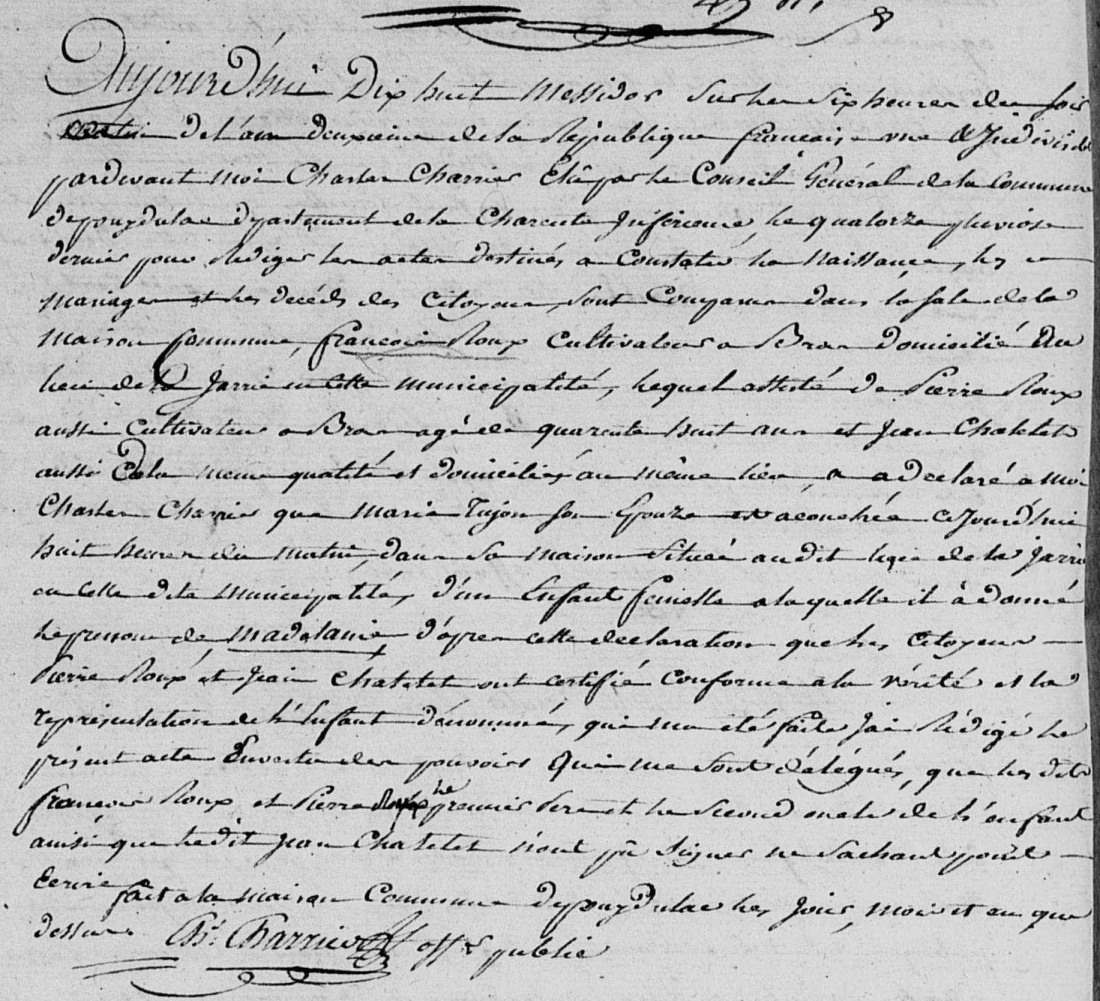 Aujourd'hui Dix huit Messidor sur les six heures du soir
de l'an deuxieme de la République francaise une & Indivisible
pardevant moi Charles Charrier Elû par le Conseil Général de la Commune
depuydulac département de la Charente Inférieure le quatorze pluviose
dernier pour Rédiger les actes destinés a Constater les Naissances, les
Mariages et les décéds des Citoyens, sont Comparus dans la sale de la
Maison Commune, francois Roux Cultivateur a Bras domicilié Du
lieu de la Jarrie en cette municipalité, lequel assisté de Pierre Roux
aussi Cultivateur a Bras agé de quarente huit ans et Jean Chatelet
aussi De la meme qualité et domiciliés au même lieu, a declaré a moi
Charles Charrier que Marie Tujon son Epouze est acouchée cejourdhui
huit heures du matin, dans sa maison située au dit lieu de la Jarrie
en cette dite Municipalité, d'un Enfant femelle a laquelle il à donné
le prenom de Madelaine, d'apres cette déclaration que les Citoyens
Pierre Roux et Jean Chatelet ont certifié Conforme a la vérité et la
représentation de l'Enfant dénommé, qui ma été faite Jai Rédigé le
présent acte Envertu des pouvoirs Qui me sont délégués, que les dits
francois Roux et Pierre Roux le premier Pere et le second oncle de l'enfant
ainsi que le dit Jean Chatelet n'ont pû signer ne sachant point
Ecrire fait a la maison Commune depuydulac les Jour, mois et an que
dessus. Chs. Charrier offr public